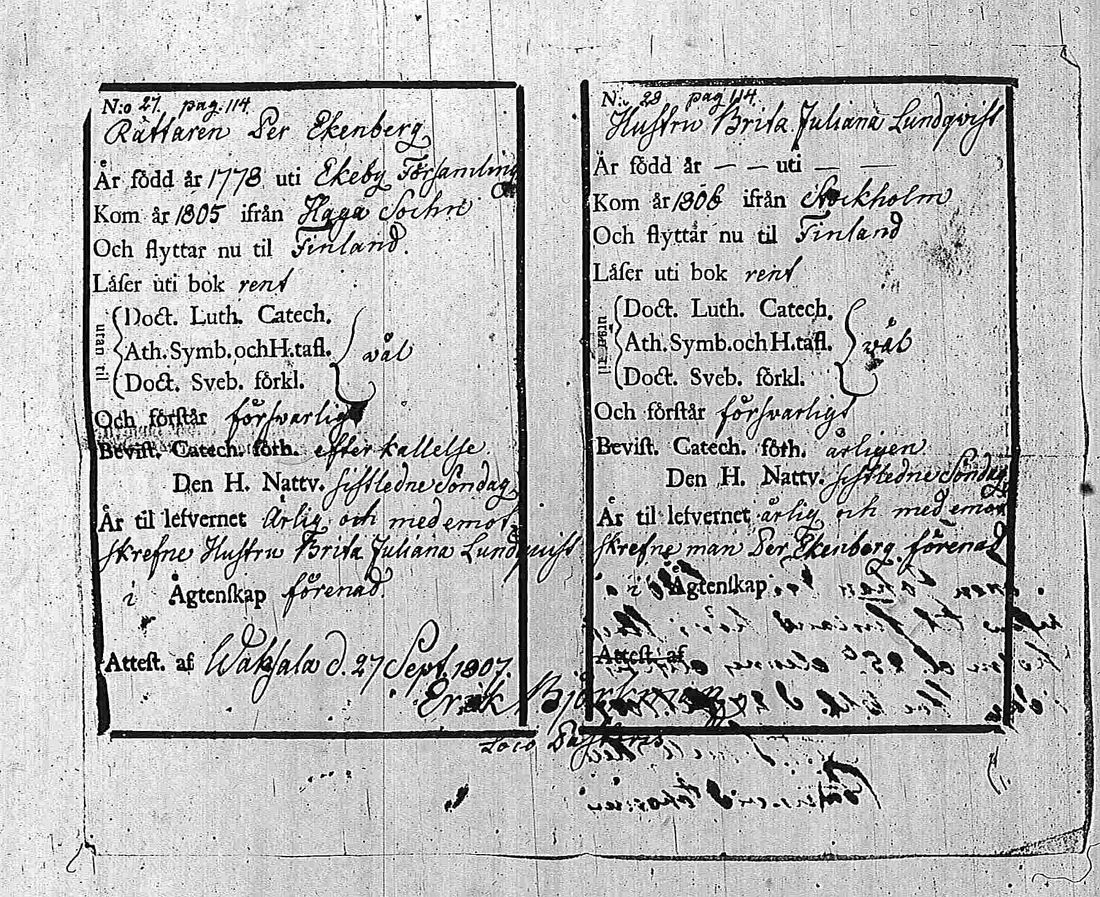 N:o 27. pag. 114.
Rättaren Per Ekenberg
År född år 1778 uti Ekeby Församling
Kom år 1805 ifrån Haga Sochn
Och flyttar nu til Finland.
Läser uti bok rent
utan til
Doct. Luth. Catech.
Ath. Symb. och H. tafl. väl
Doct. Sveb. förkl.
Och förstår försvarligt
Bevist. Catech. förh. efter kallelse.
Den H. Nattv. sistledne Söndag
År til lefvernet Ärlig och med emot
skrefne Hustru Brita Juliana Lundquist
i Ägtenskap förenad.
Attest. af Waksala d. 27 Sept. 1807.
Erik Björkman
Loco Pastoris
N:o 28 pag 114.
Hustru Brita Juliana Lundqvist
Är född år — — uti — —
Kom år 1806 ifrån Stockholm
Och flyttar nu til Finland
Läser uti bok rent
utan til
Doct. Luth. Catech.
Ath. Symb. och H. tafl. väl
Doct. Sveb. förkl.
Och förstår försvarligt
Bevist. Catech. förh. årligen
Den H. Nattv. sistledne Söndag
År til lefvernet ärlig och med emot
skrefne man Per Ekenberg förenad
i Ägtenskap.
Attest. af